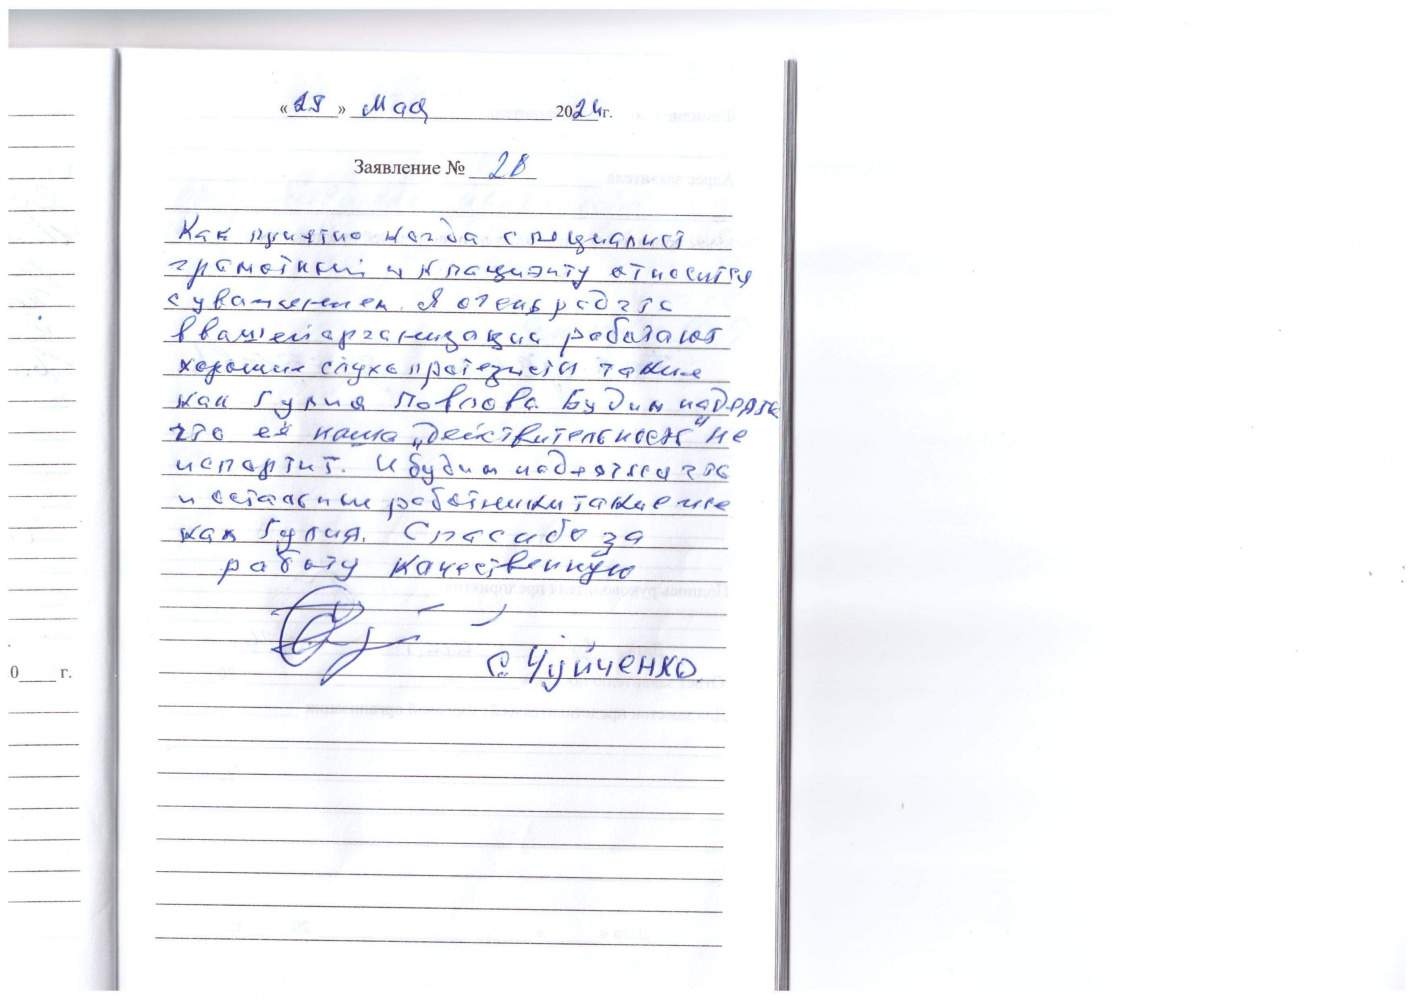 «28» Мая 2024г.
Заявление № 28
Как приятно когда специалист
грамотный и к пациэнту относится
с уважением. Я очень рад что
в вашей арганизации работают
хорошие слухопротезисты такие
как Гулия Повлова. Будим надеятся
что её наша "действительность" не
испартит. И будим надеятся что
и остальные работники такие же
как Гулия. Спасибо за
работу качественную
С. Чуйченко.
0____ г.